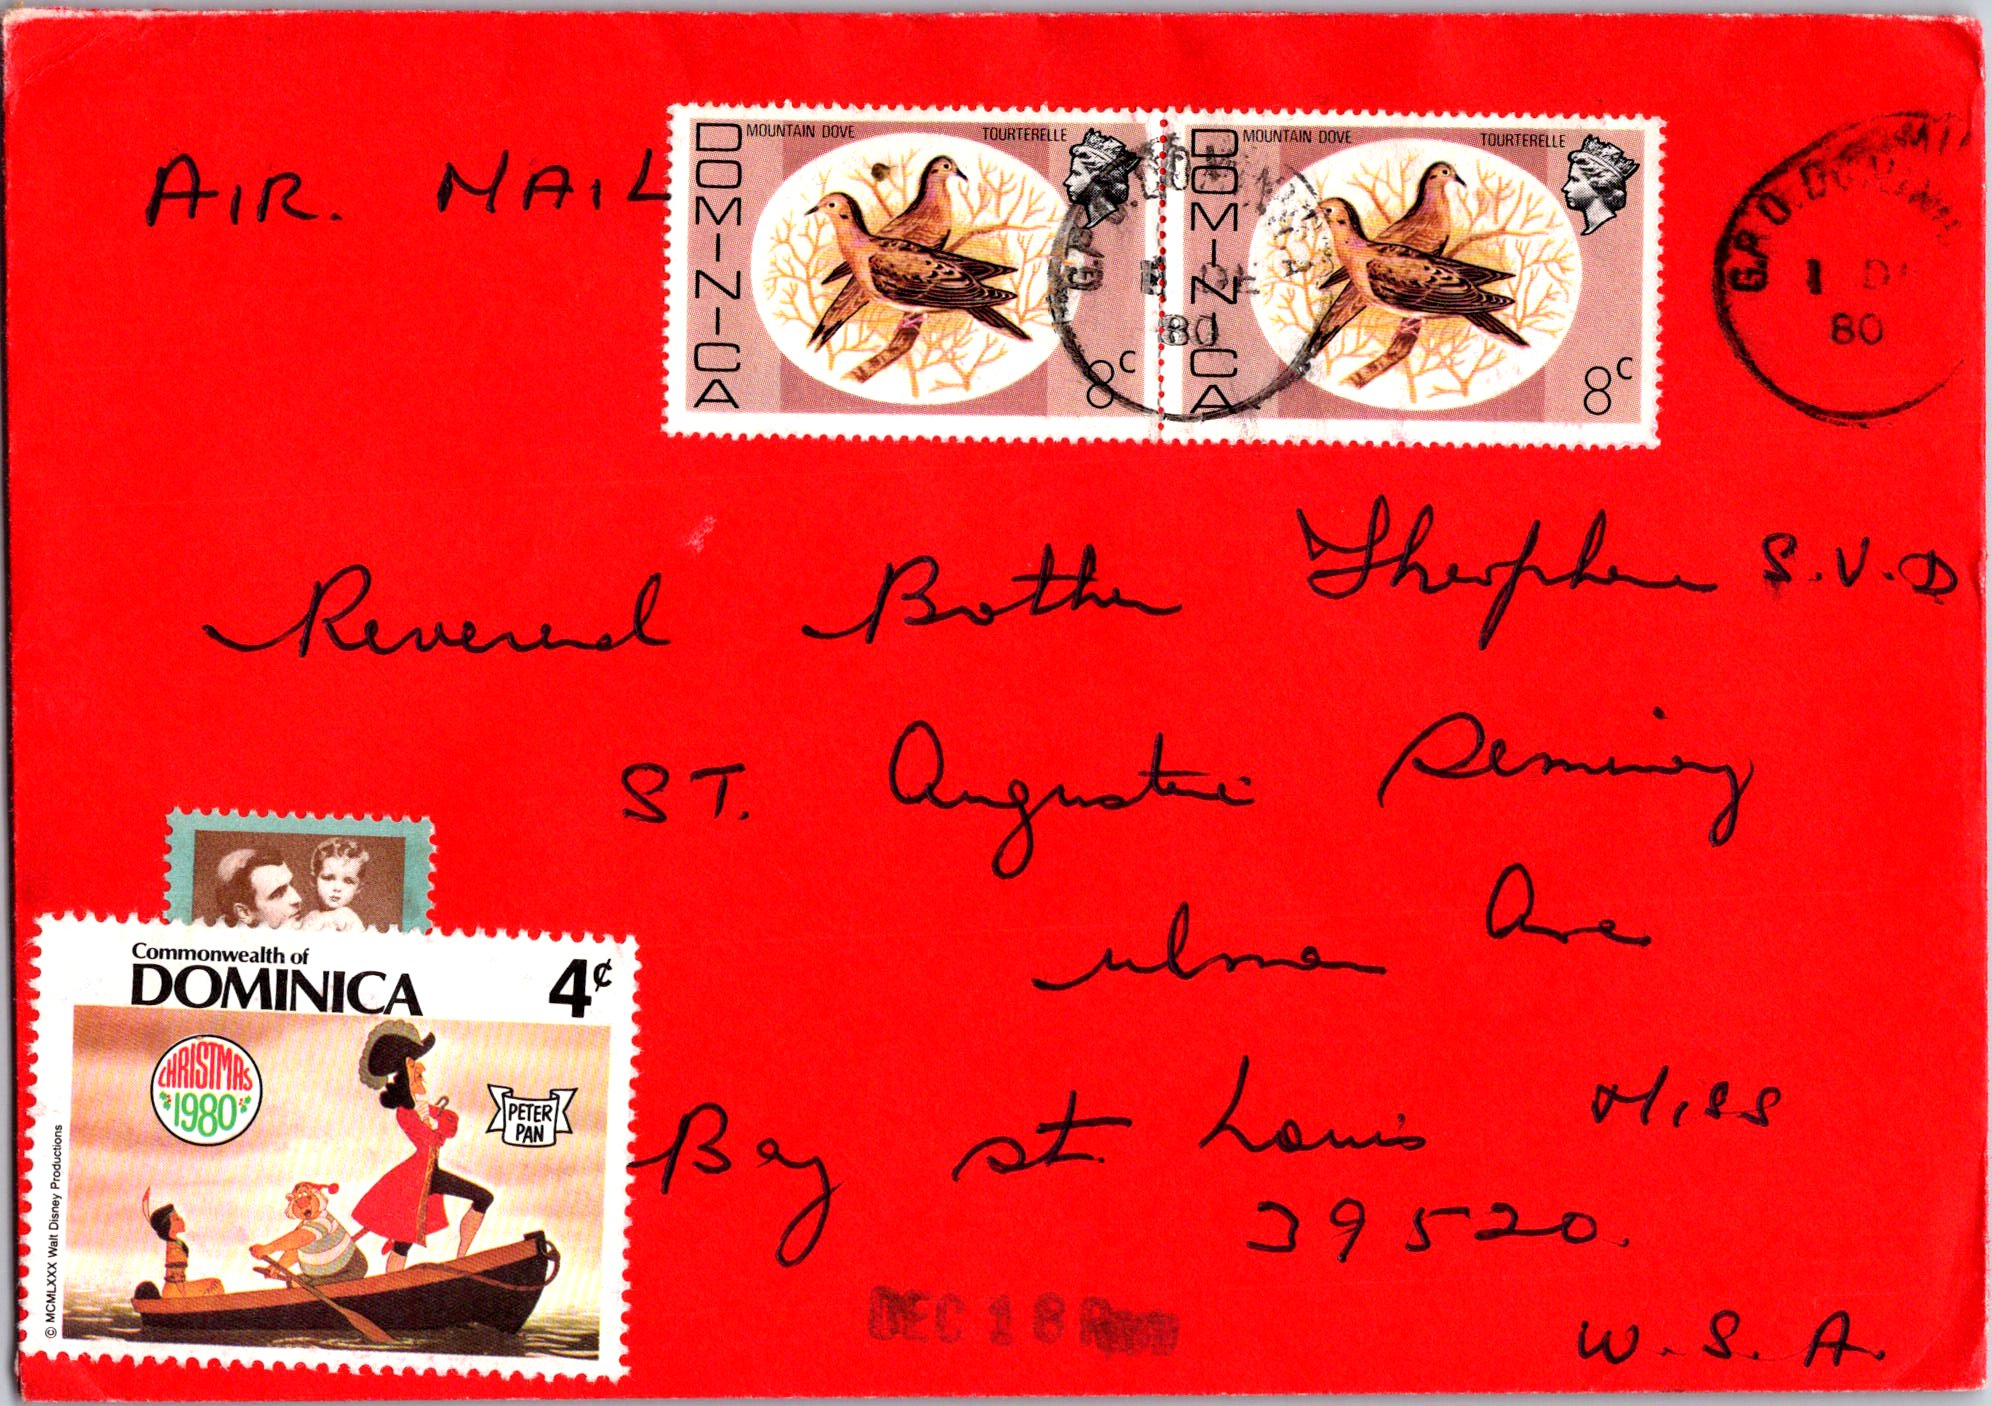 AIR. MAIL
DOMINICA
MOUNTAIN DOVE TOURTERELLE
8c
DOMINICA
MOUNTAIN DOVE TOURTERELLE
8c
80
G.P.O. DOMINI
1 D
80
Reverend Bother Theophane S.V.D
ST. Augustine Seminary
ulman Ave
Bay st. Louis Miss
39520.
U.S.A.
DEC 18
Commonwealth of
DOMINICA 4¢
CHRISTMAS
1980
PETER
PAN
© MCMLXXX Walt Disney Productions